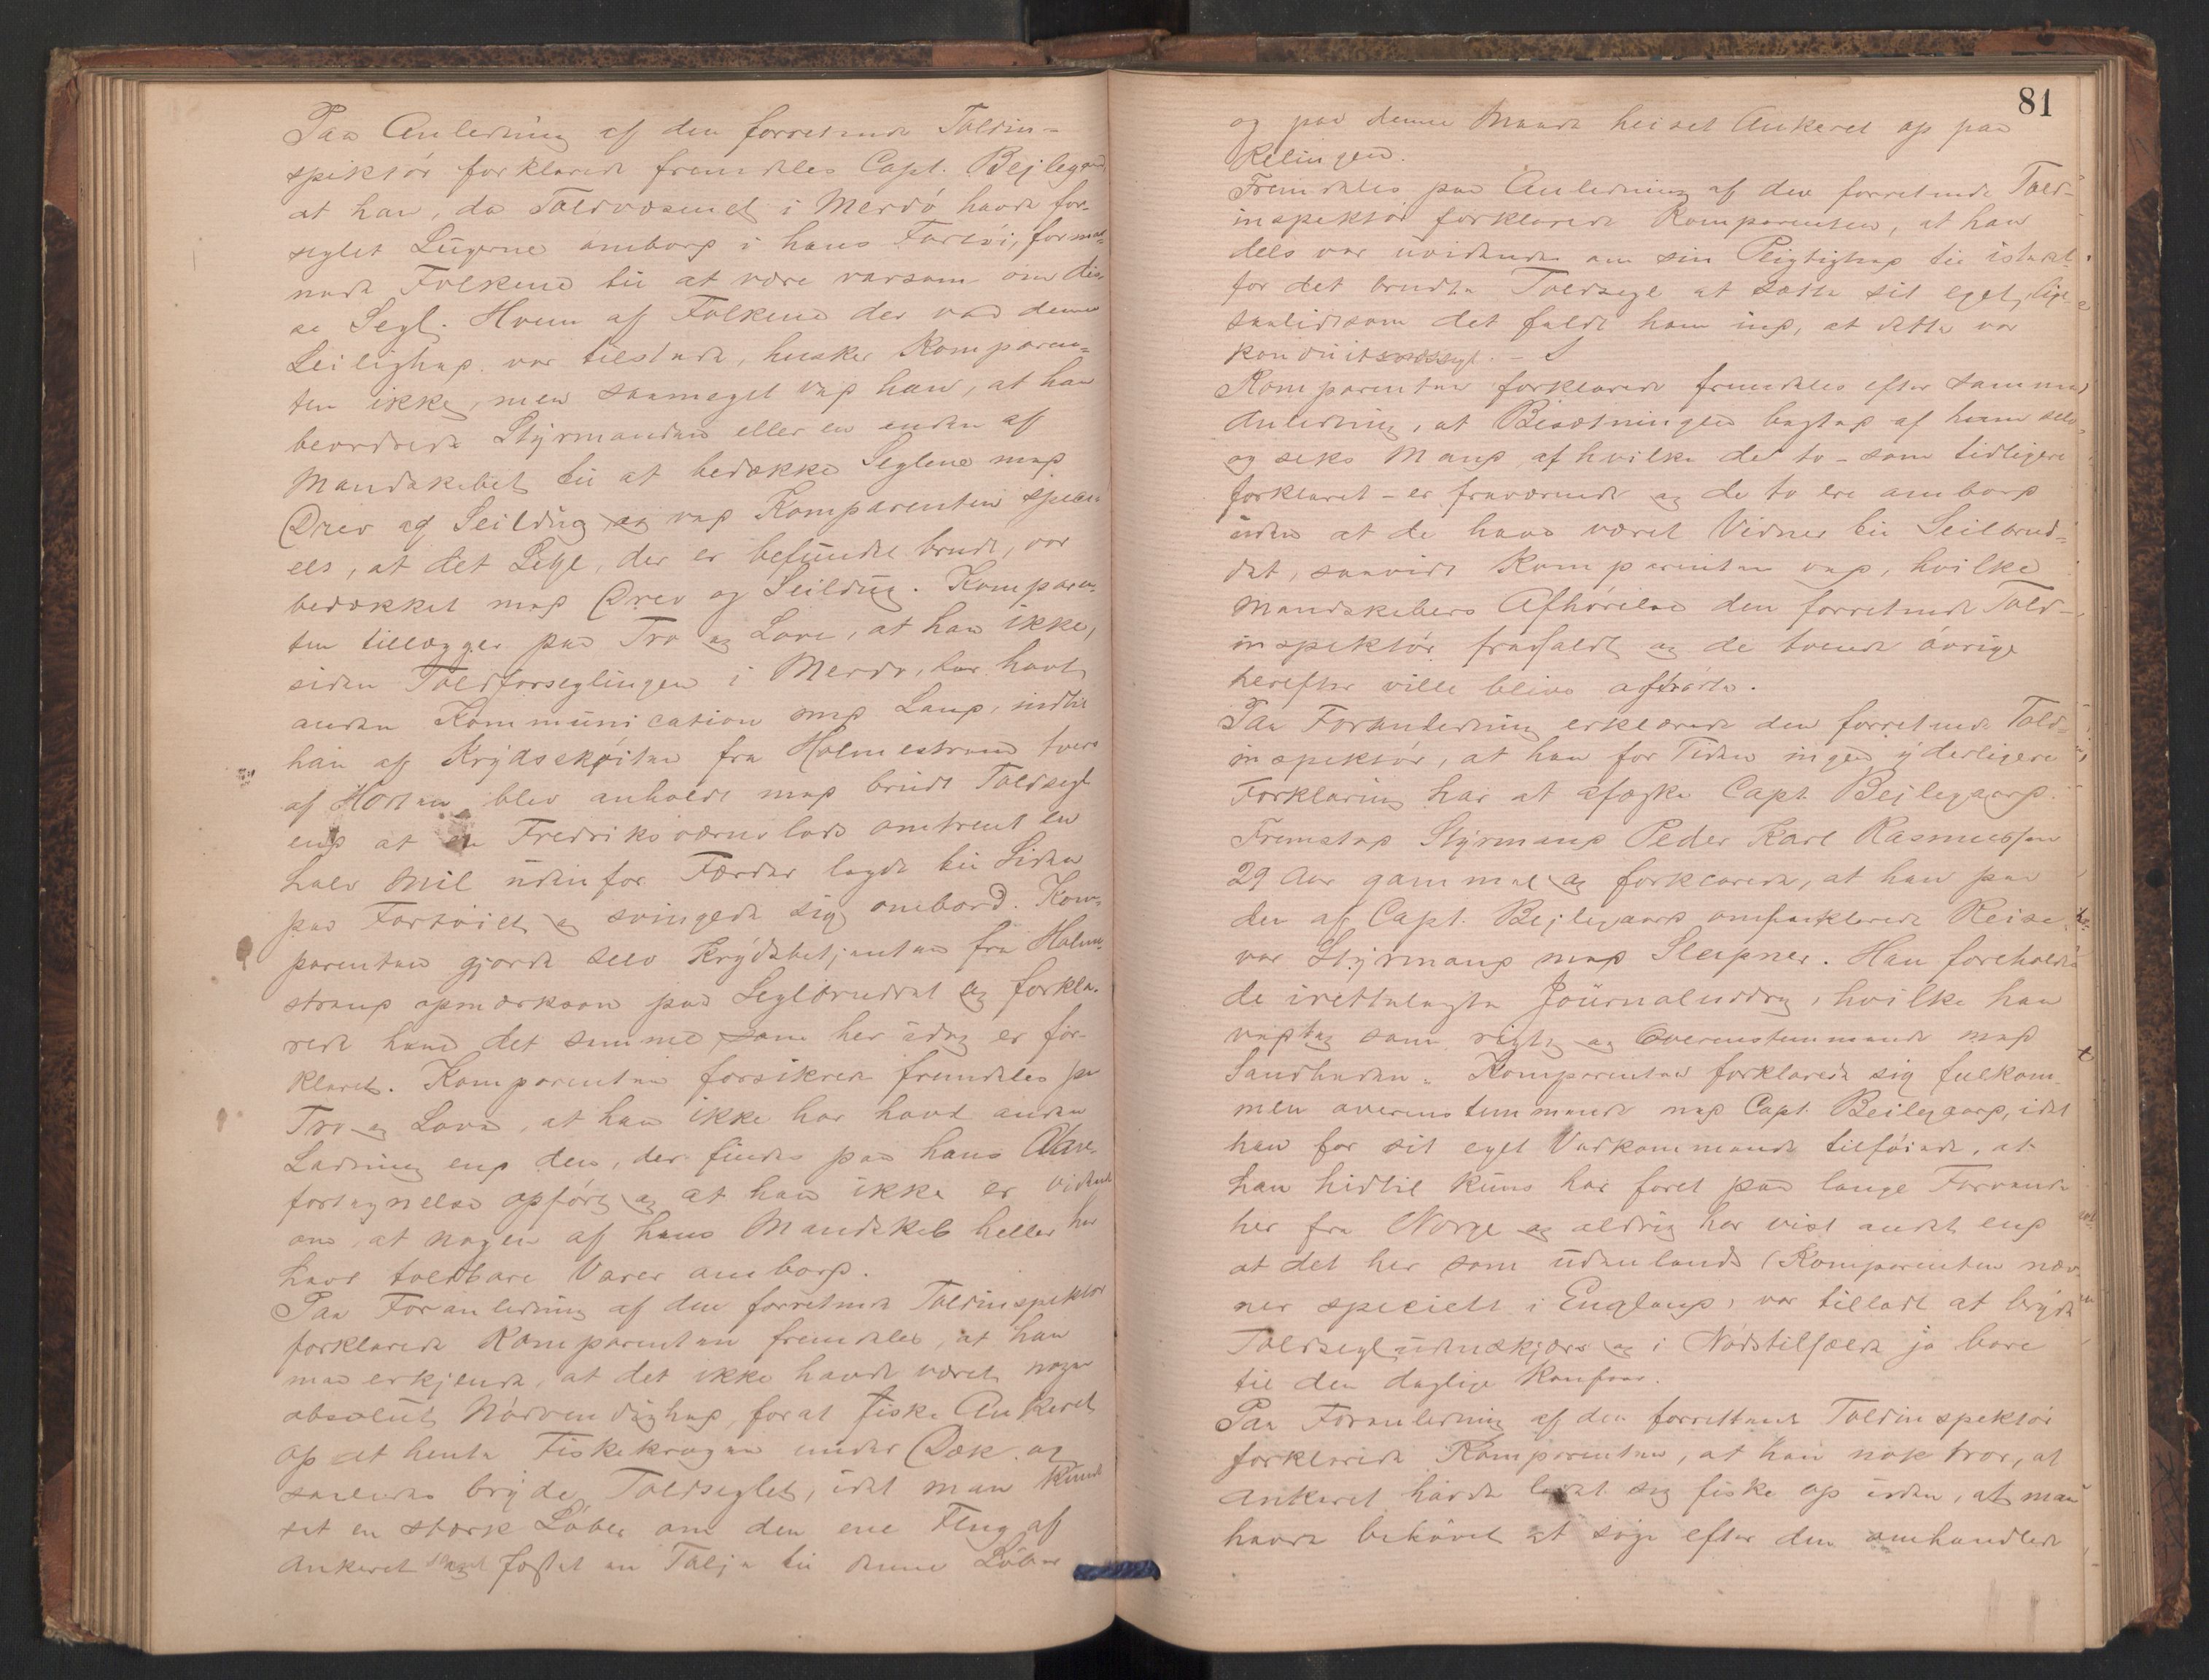 Paa Anledning af den forrettende Toldin-
spektör forklarede fremdeles Capt. Bejlegaard
at han, da Toldvæsenet i Merdö havde for-
seglet Lugerne ombord i hans Fartöi, forma-
nede Folkene til at være varsom om dis-
se Segl. Hvem af Folkene der ved denne
Leilighed var tilstede, husker Komparen-
ten ikke, men saameget ved han, at han
beordrede Styrmanden eller en anden af
Mandskabet til at bedække Seglene med
Drev og Seildug og ved Komparenten speci-
elt, at det Segl, der er befundet brudt, var
bedækket med Drev og Seildug. Komparen-
ten tillægger paa Tro og Love, at han ikke,
siden Toldforseglingen i Merdö, har havt
anden Kommunication med Land, indtil
han af Krydsskøiten fra Holmestrand tvers
af Horten blev anholdt med brudt Toldsegl
end at en Fredriksværns lods omtrent en
halv Mil udenfor Færder lagde til Siden
paa Fartöiet og svingede sig ombord. Kom-
parenten gjorde selv Krydsbetjenten fra Holme-
strand opmærksom paa Seglbruddet og forkla-
rede ham det samme som her idag er for-
klaret. Komparenten forsikrede fremdeles paa
Tro og Love, at han ikke har havt anden
Ladning end den, der findes paa hans Vare-
fortegnelse opfört og at han ikke er vidende
om, at nogen af hans Mandskab heller har
havt toldbare Varer ombord.
Paa Foranledning af den forrettende Toldinspektör
forklarede Komparenten fremdeles, at han
maa erkjende, at det ikke havde været nogen
absolut Nödvendighed, forat fiske Ankeret
op at hente Fiskekrogen under Dæk og
saaledes bryde Toldseglet, idet man kunde
set en stærk Löber om den ene Flug af
Ankeret samt fæstet en Talje til denne Löber
81
og paa denne Maade heiset Ankeret op paa
Relingen.
Fremdeles paa Anledning af den forrettende Told-
inspektör forklarede Komparenten, at han
dels var uvidende om sin Pligtighed til istedet-
for det brudte Toldsegl at sætte sit eget, lige-
saalidtsom det faldt ham ind, at dette var
konduitsmæssigt. -
Komparenten forklarede fremdeles efter samme
Anledning, at Besætningen bestod af ham selv
og seks Mand af hvilke de to - som tidligere
forklaret - er fraværende og de to ere ombord
uden at de have været Vidner til Seilbrud-
det, saavidt Komparenten ved, hvilke
Mandskabers Afhörelse den forrettende Told-
inspektör frafaldt og de tvende övrige
herefter ville blive afhörte.
Paa Foranledning erklærede den forrettende Told-
inspektör, at han for Tiden ingen yderligere
Forklaring har at afæske Capt. Bejlegaard.
Fremstod Styrmand Peder Karl Rasmussen
29 Aar gammel og forklarede, at han paa
den af Capt. Bejlegaard omforklarede Reise
var Styrmand med Sleipner. Han foreholdtes
de irettelagte Journaluddrag, hvilke han
vedtog som rigtig og overensstemmende med
Sandheden. Komparenten forklarede sig fulkom-
men overensstemmende med Capt. Beilegaard, idet
han for sit eget Vedkommende tilföiede, at
han hidtil kuns har faret paa lange Farvande
her fra Norge og aldrig har vist andet end
at det her som udenlands (Komparenten næv-
ner specielt i England) var tilladt at bryde
Toldsegl udenskjærs og i Nödstilfælde ja bare
til den daglige Kanfaas.
Paa Foranledning af den forrettende Toldinspektör
forklarede Komparenten, at han nok tror, at
Ankeret havde ladet sig fiske op uden, at man
havde behövet at söge efter den omhandlede